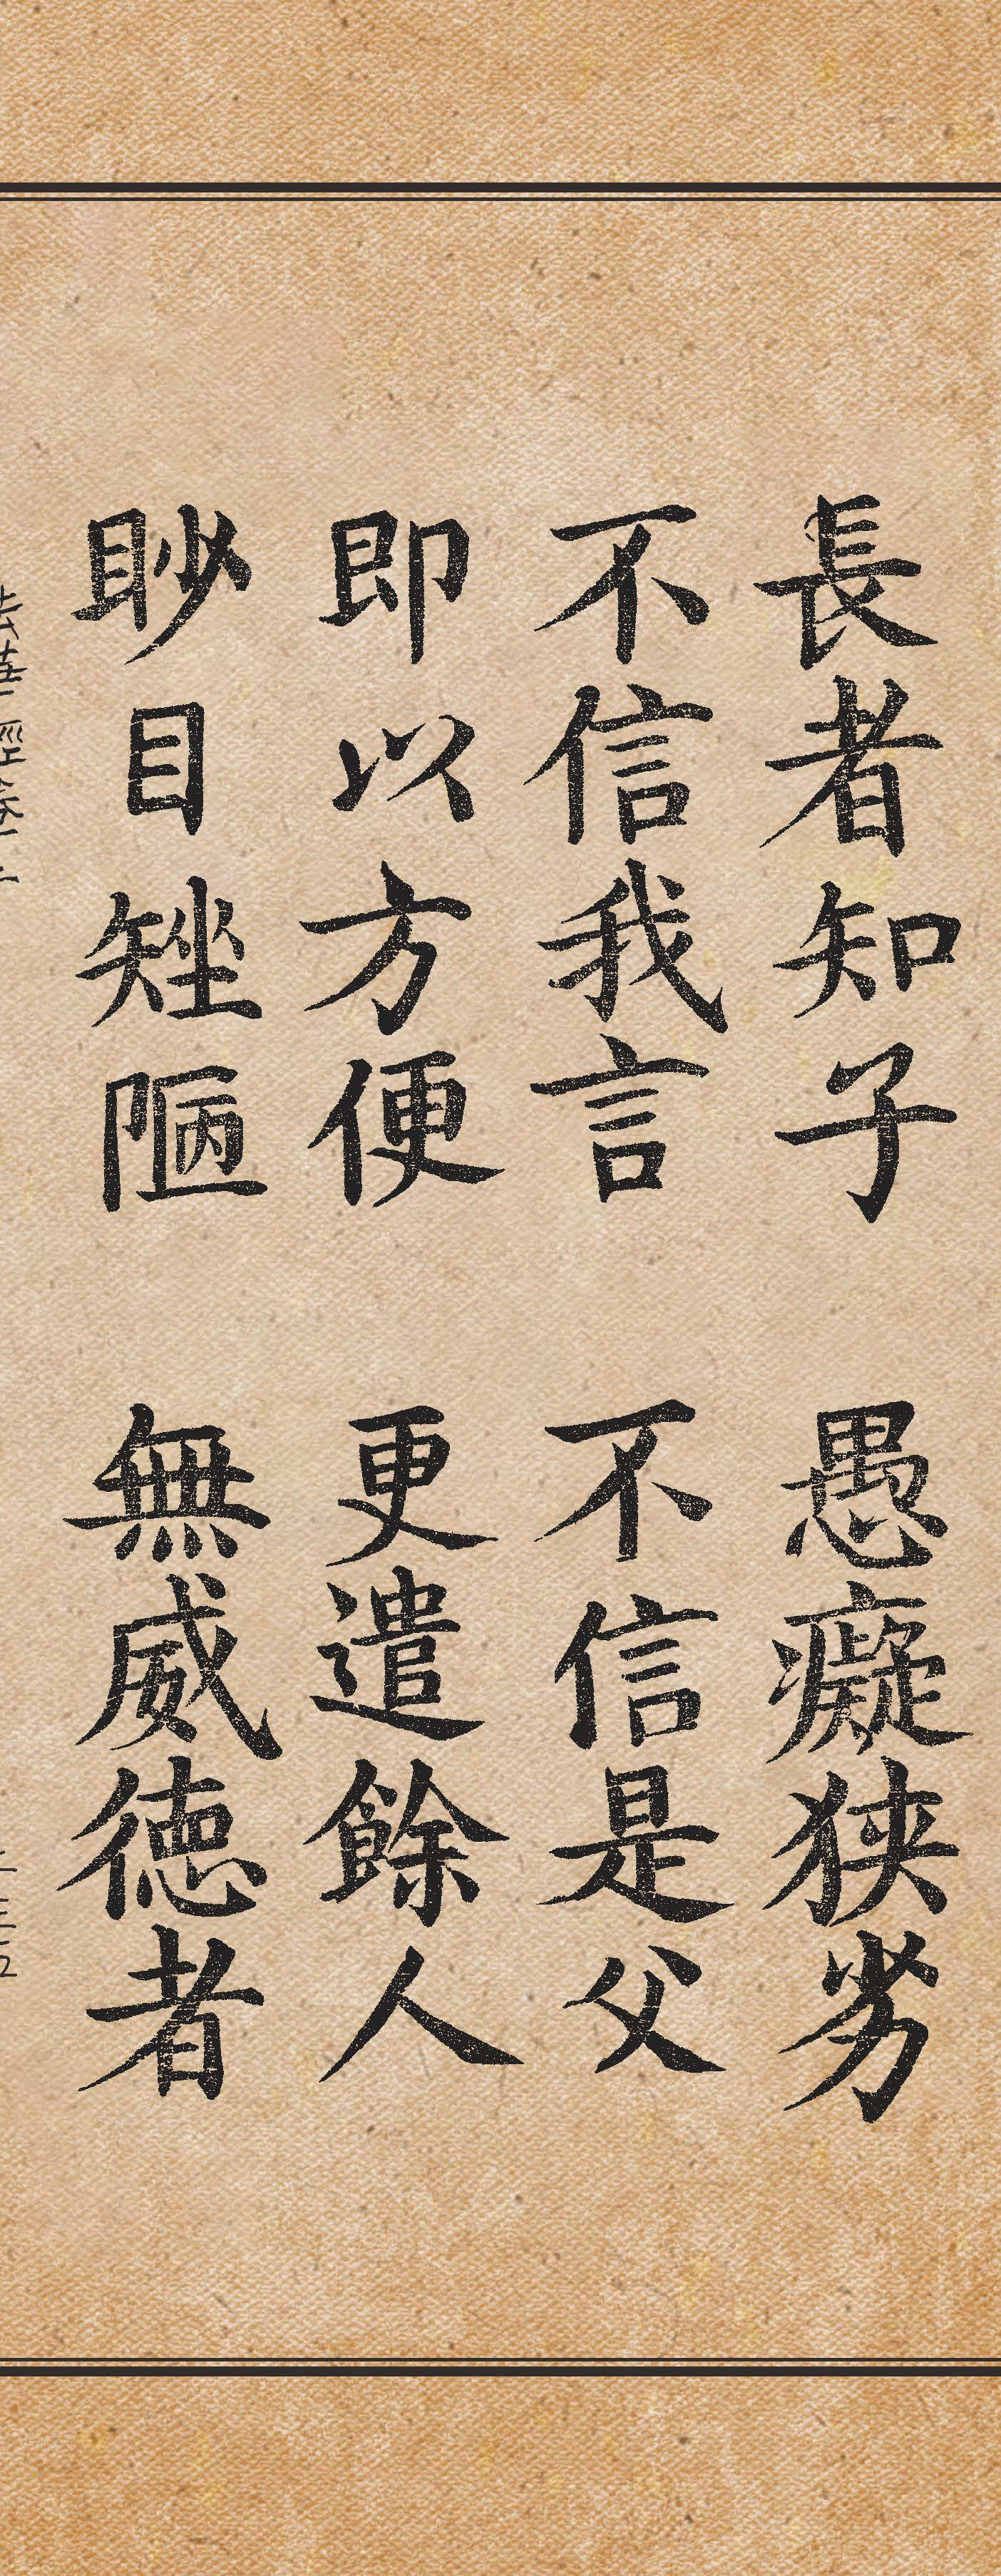 長者知子 愚癡狭劣
不信我言 不信是父
即以方便 更遣餘人
眇目矬陋 無威徳者